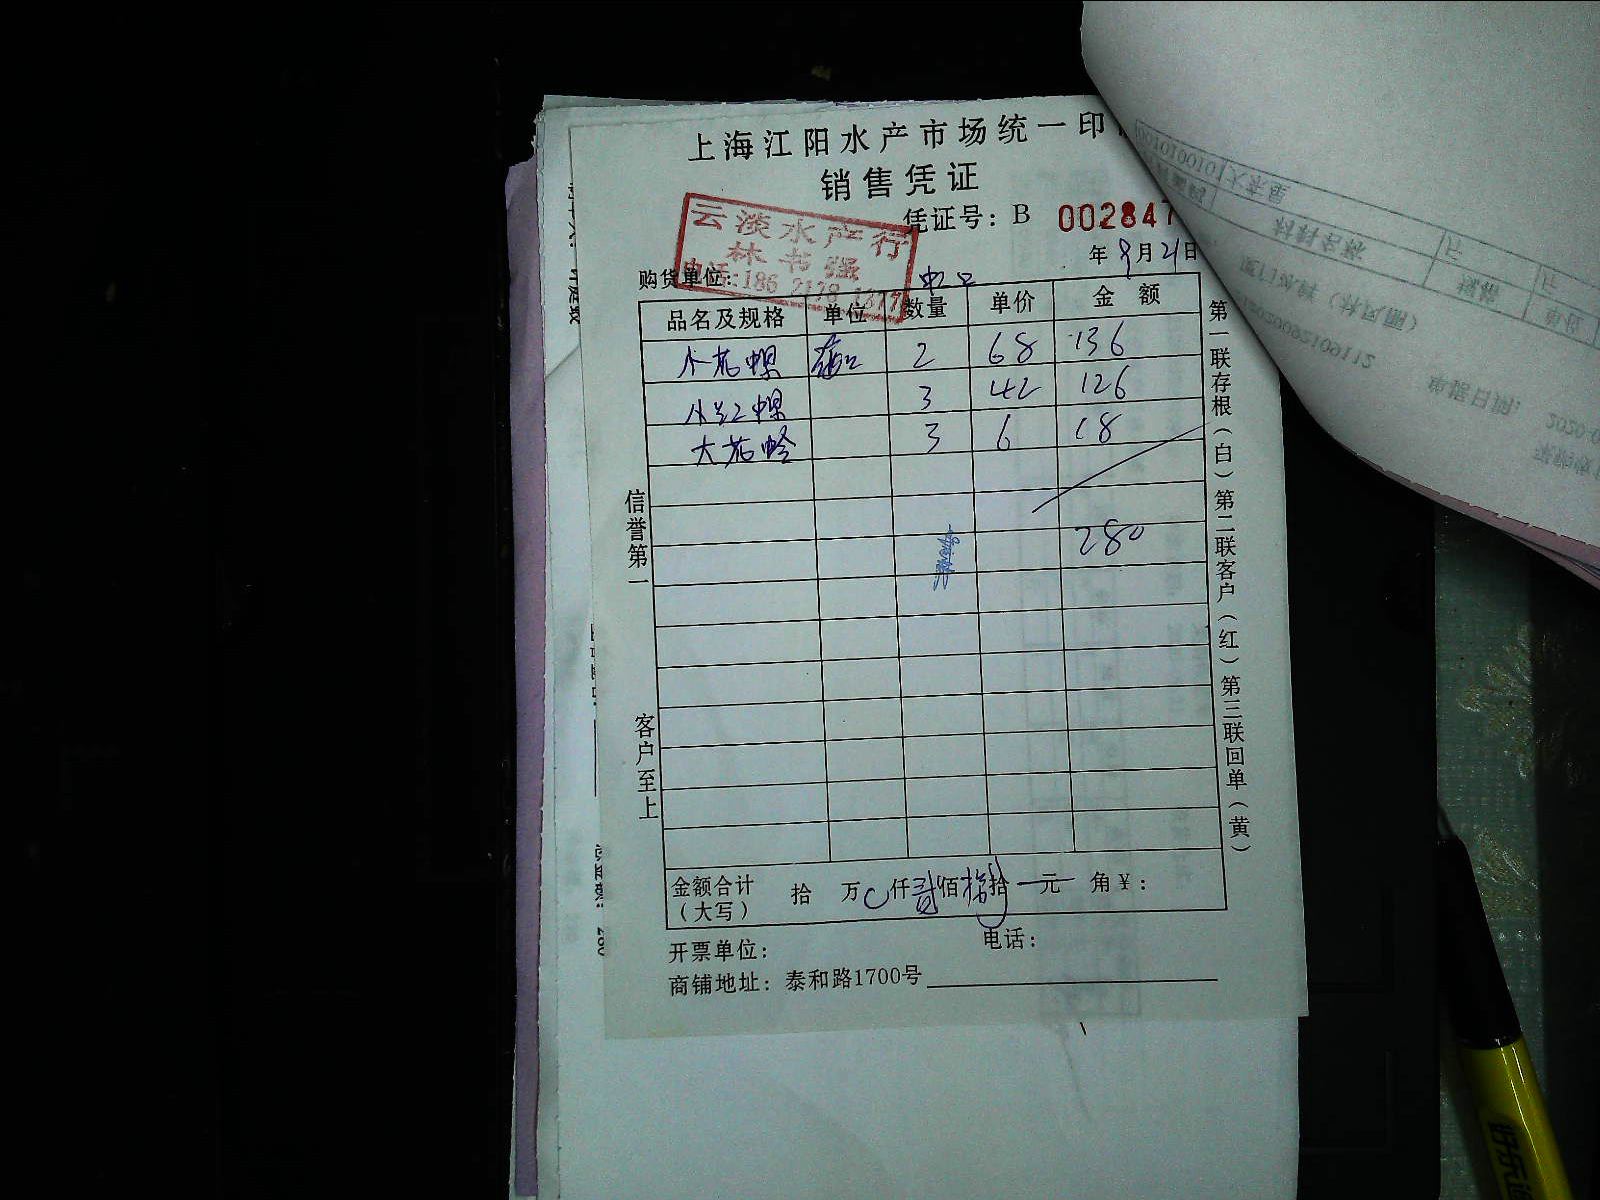 上海江阳水产市场统一印
销售凭证
凭证号：B 002847
云淡水产行
林书强
电话:186 2178 1377
年9月21日
购货单位：
品名及规格 单位 数量 单价 金额
小花螺 2 68 136
小红螺 3 42 126
大花蛤 3 6 18
280
信誉第一
客户至上
第一联存根（白）第二联客户（红）第三联回单（黄）
金额合计（大写） 拾 万 仟贰佰捌拾 元 角￥：
开票单位： 电话：
商铺地址：泰和路1700号